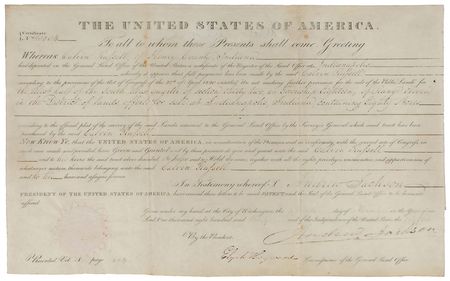 THE UNITED STATES OF AMERICA,
Certificate
To all to whom these Presents shall come Greeting
Whereas Calvin Russell of County Indiana
deposited in the General Land Office of the United States a Certificate of the Register of the Land Office at Indianapolis
whereby it appears that full payment has been made by the said Calvin Russell
according to the provisions of the Act of Congress of the 24th of April 1820 entitled An act making further provision for the sale of the Public Lands for
the half of the South quarter of section thirty two in Township Eighteen of Range Eleven
in the District of lands offered for sale at Indianapolis Indiana Containing Eighty Acres
according to the official plat of the survey of the said Lands returned to the General Land Office by the Surveyor General which said tract has been
purchased by the said Calvin Russell
Now Know Ye that the UNITED STATES OF AMERICA in consideration of the Premises and in conformity with the several acts of Congress in
such case made and provided have Given and Granted and by these presents do give and grant unto the said Calvin Russell
and to his heirs the said tract above described To have and to hold the same together with all the rights privileges immunities and appurtenances of
whatsoever nature thereunto belonging unto the said Calvin Russell
and to his heirs and assigns forever
In Testimony whereof I, Andrew Jackson
PRESIDENT OF THE UNITED STATES OF AMERICA have caused these Letters to be made PATENT and the Seal of the General Land Office to be hereunto
affixed
Given under my hand at the City of Washington the day of in the Year of our
Lord One thousand eight hundred and and of the Independence of the United States the
By the President. Andrew Jackson
Commissioner of the General Land Office
Recorded Vol page